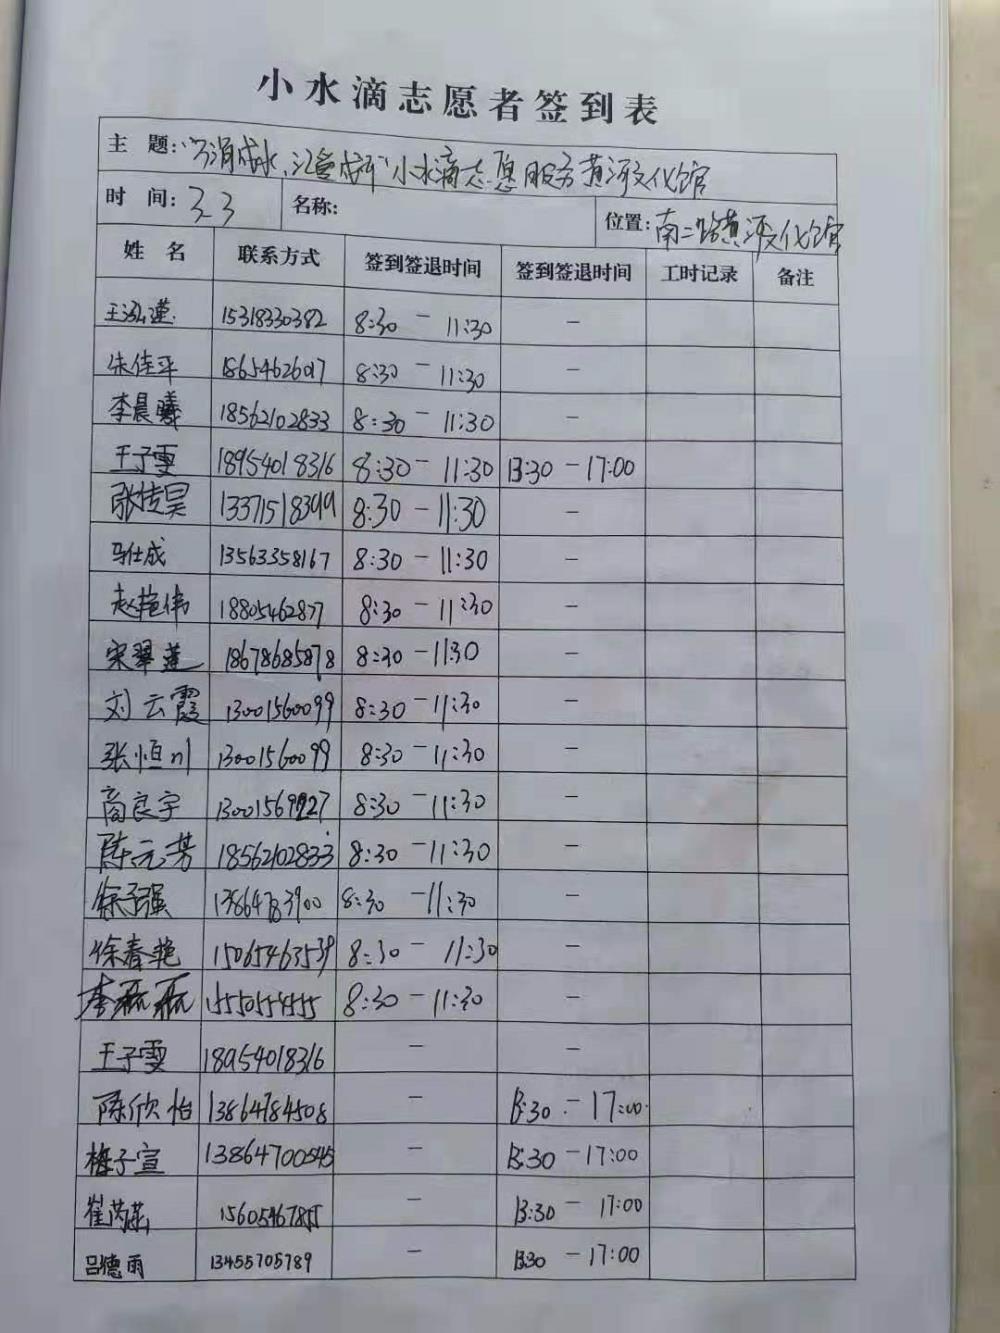 小水滴志愿者签到表
主 题: 小水滴志愿服务黄河文化馆
时 间: 3.3 名称: 位置: 南二路黄河文化馆
姓 名 联系方式 签到签退时间 签到签退时间 工时记录 备注
王泓 15318330382 8:30 - 11:30 -
朱佳平 8:30 - 11:30 -
李晨曦 18562102833 8:30 - 11:30 -
王子雯 18954018316 8:30 - 11:30 13:30 - 17:00
张佳昊 8:30 - 11:30 -
马仕成 13563358167 8:30 - 11:30 -
赵艳伟 18805462877 8:30 - 11:30 -
宋翠莲 18678685878 8:30 - 11:30 -
刘云霞 13001560099 8:30 - 11:30 -
张恒川 13001560099 8:30 - 11:30 -
商良宇 8:30 - 11:30 -
陈元芳 18562102833 8:30 - 11:30 -
徐子强 8:30 - 11:30 -
徐春艳 15065463539 8:30 - 11:30 -
李磊磊 8:30 - 11:30 -
王子雯 18954018316 - -
陈欣怡 13864784508 - 13:30 - 17:00
梅子宣 13864700545 - 13:30 - 17:00
崔 - 13:30 - 17:00
吕德雨 13455705789 - 13:30 - 17:00